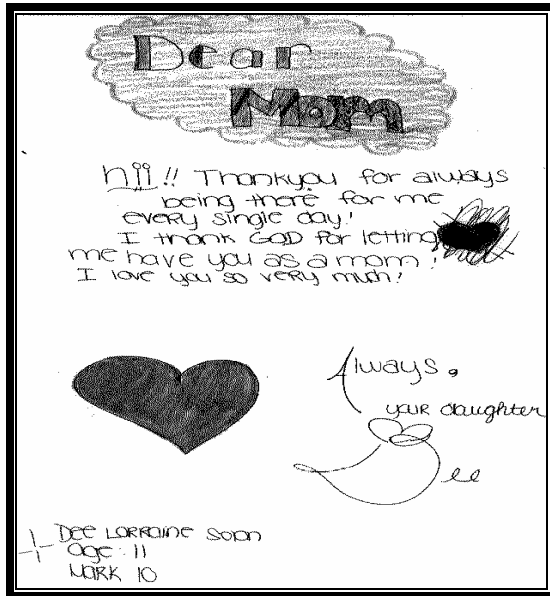 Dear
Mom
hii!! Thankyou for always
being there for me
every single day!
I thank GOD for letting
me have you as a mom!
I love you so very much!
Always,
your daughter
Dee
DEE LORRAINE
age: 11
MARK 10